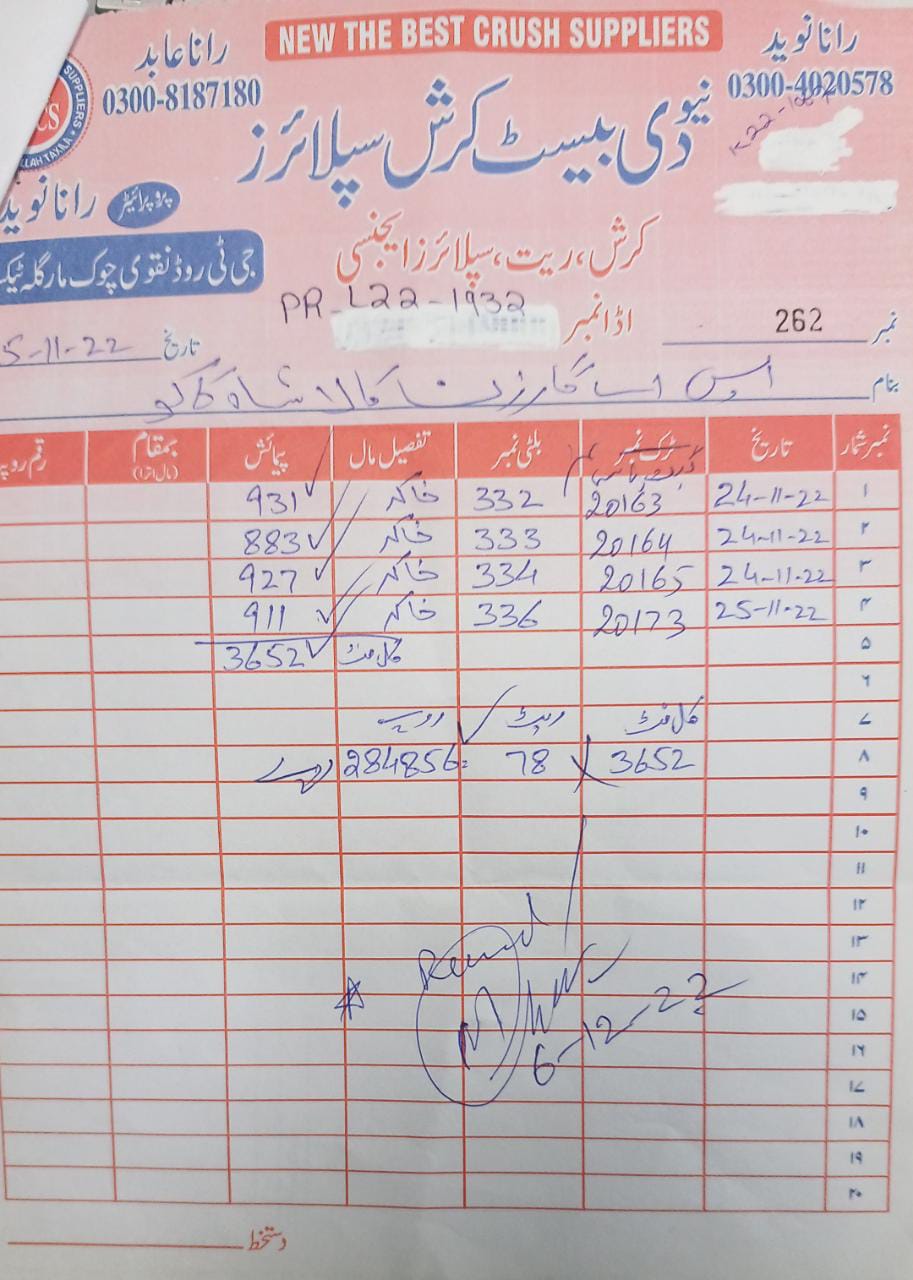 NEW THE BEST CRUSH SUPPLIERS
رانا نوید
0300-4020578
رانا عابد
0300-8187180
SUPPLIERS
CS
TAXILA
نیو دی بیسٹ کرش سپلائرز
K22-
پروپرائیٹر رانا نوید
کرش، ریت، سپلائرز ایجنسی
جی ٹی روڈ نقوی چوک مارگلہ
PR-L22-1932
نمبر 262 اڈا نمبر
تاریخ 5-11-22
بنام
نمبر شمار تاریخ ٹرک نمبر بلٹی نمبر تفصیل مال پیمائش بمقام (مال اترا) رقم روپے
گیٹ پاس
۱ 24-11-22 20163 332 خاکہ 931
۲ 24-11-22 20164 333 خاکہ 883
۳ 24-11-22 20165 334 خاکہ 927
۴ 25-11-22 20173 336 خاکہ 911
۵ کل فٹ 3652
۶
۷ کل فٹ ریٹ روپے
۸ 3652 × 78 = 284856 روپے
۹
۱۰
۱۱
۱۲
۱۳
۱۴
۱۵
۱۶
۱۷
۱۸
۱۹
۲۰
6-12-22
دستخط